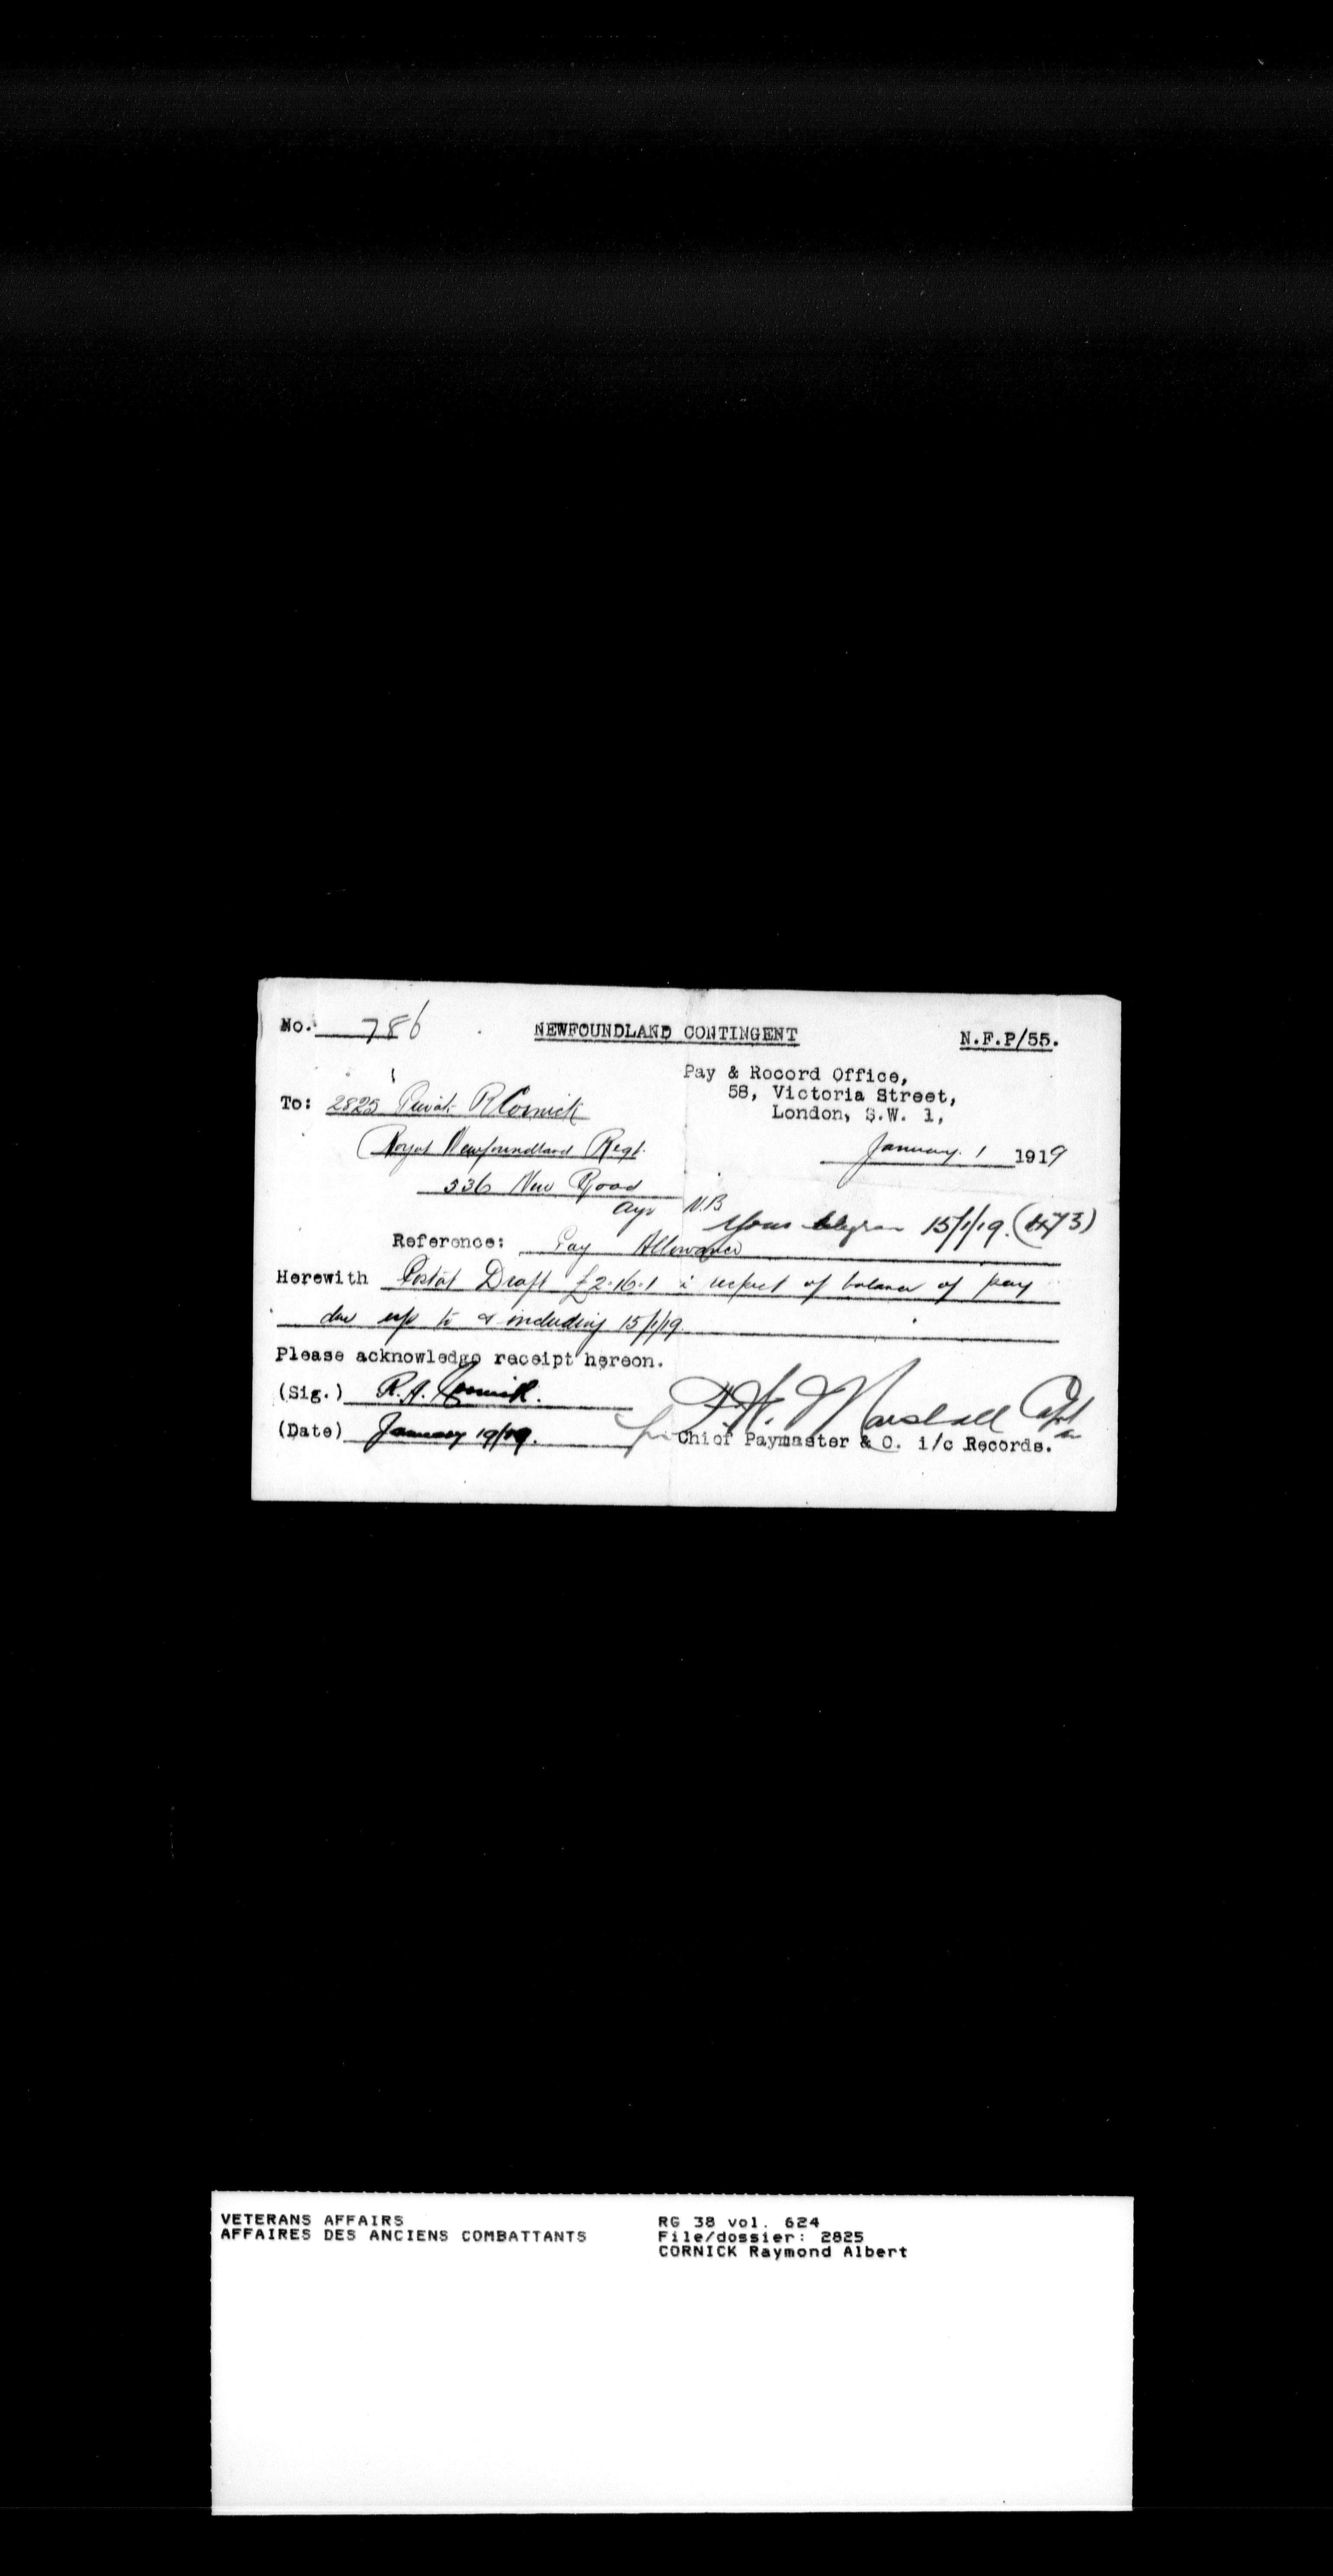 No. 786 NEWFOUNDLAND CONTINGENT N.F.P/55.
Pay & Rocord Office,
58, Victoria Street,
London, S.W. 1,
To: 2825 Private R Cornick
Royal Newfoundland Regt.
336 New Road
Ayr N.B
January 1 1919
Your telegram 15/1/19. (473)
Reference: Pay Allowance
Herewith Postal Draft £2.16.1 in respect of balance of pay
due up to & including 15/1/19
Please acknowledge receipt hereon.
(Sig.) R.A. Cornick.
(Date) January 19/19.
for F.H. Marshall Capt
Chief Paymaster & O. i/c Records.
VETERANS AFFAIRS
AFFAIRES DES ANCIENS COMBATTANTS
RG 38 vol. 624
File/dossier: 2825
CORNICK Raymond Albert